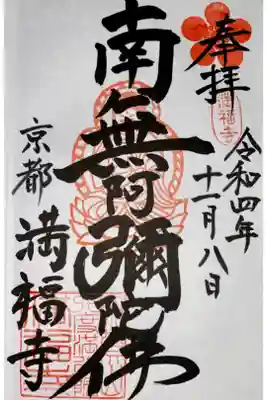 奉拝
令和四年
十一月八日
南無阿彌陀佛
京都
満福寺